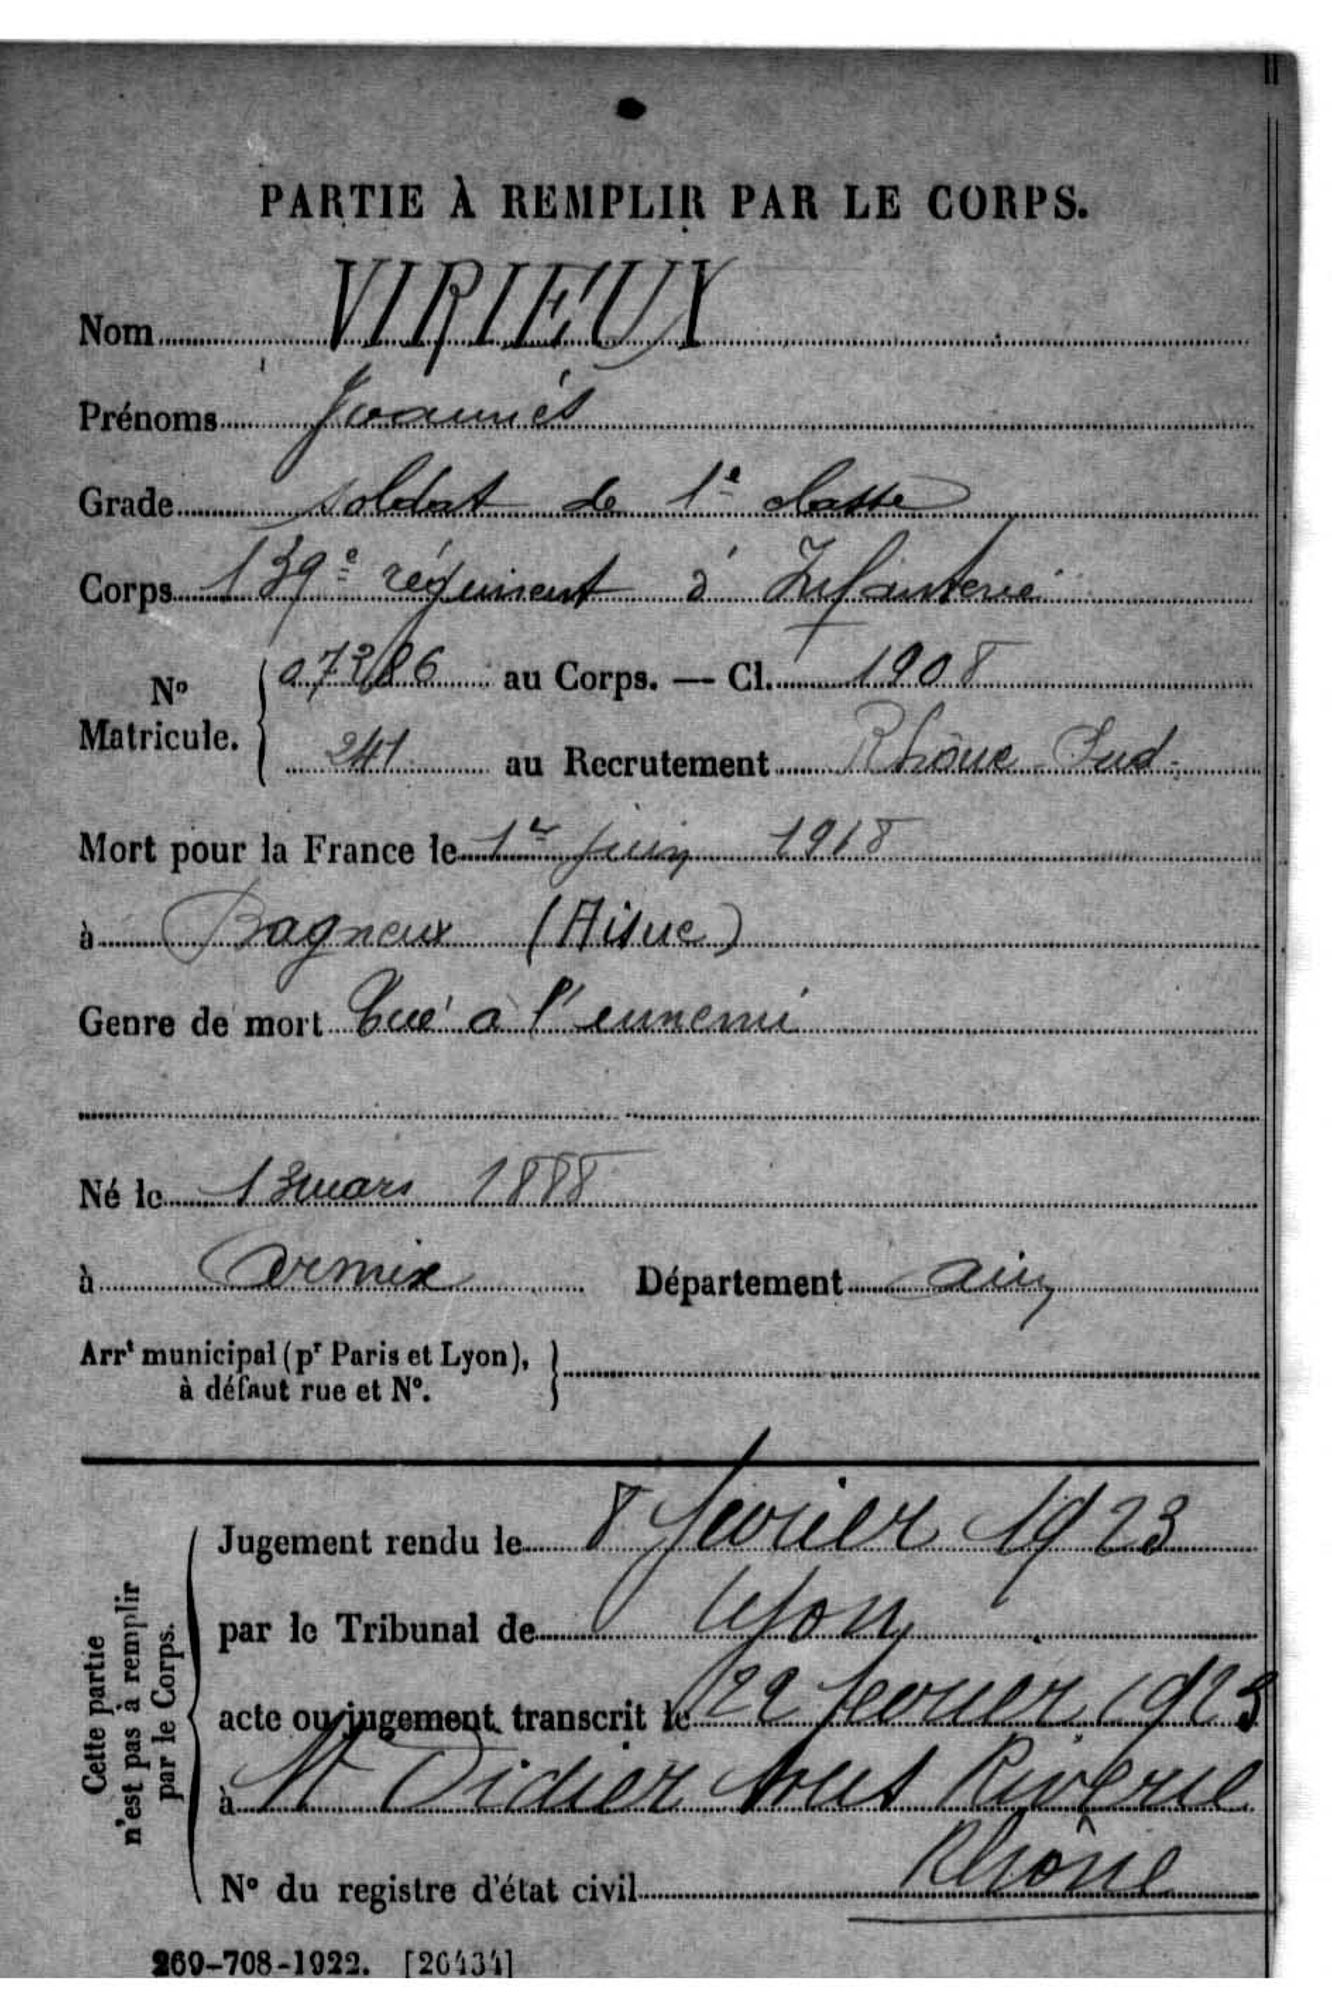 PARTIE À REMPLIR PAR LE CORPS.
Nom VIRIEUX
Prénoms Joannès
Grade soldat de 1e classe
Corps 139e régiment d'Infanterie
No Matricule. au Corps. — Cl. 1908
241 au Recrutement Rhône Sud
Mort pour la France le 1er juin 1918
à Bagneux (Aisne)
Genre de mort Tué à l'ennemi
Né le 13 mars 1888
à Armix Département Ain
Arrt municipal (pr Paris et Lyon),
à défaut rue et No.
Cette partie
n'est pas à remplir
par le Corps.
Jugement rendu le 8 février 1923
par le Tribunal de Lyon
acte ou jugement transcrit le 22 février 1923
à St Didier sous Riverie
Rhône
No du registre d'état civil
269-708-1922. [26434]